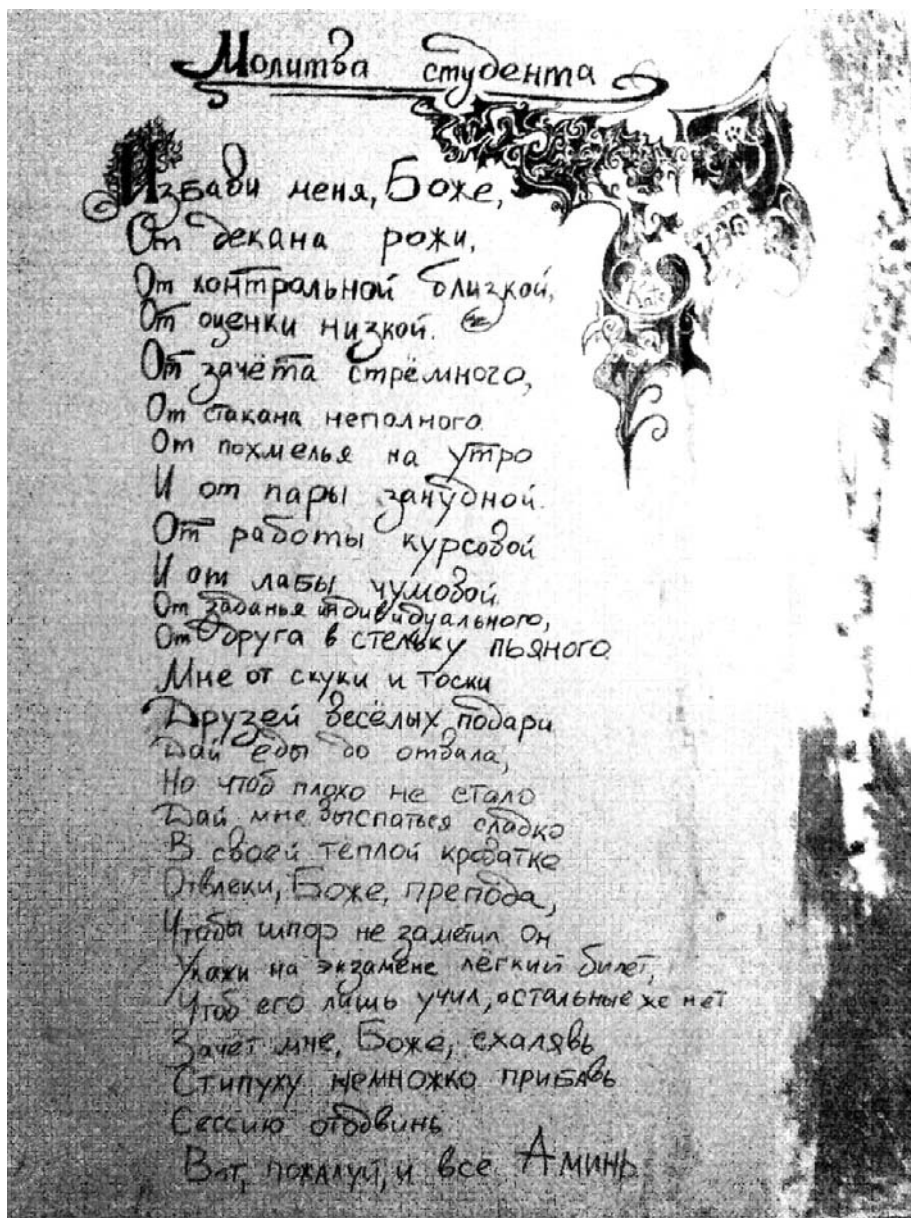 Молитва студента
Избави меня, Боже,
От декана рожи,
От контрольной близкой,
От оценки низкой.
От зачёта стрёмного,
От стакана неполного.
От похмелья на утро
И от пары занудной.
От работы курсовой
И от лабы чумовой.
От заданья индивидуального,
От друга в стельку пьяного.
Мне от скуки и тоски
Друзей весёлых подари
Дай еды до отвала,
Но чтоб плохо не стало
Дай мне выспаться сладко
В своей теплой кроватке
Отвлеки, Боже, препода,
Чтобы шпор не заметил он
Укажи на экзамене легкий билет,
Чтоб его лишь учил, остальные же нет
Зачёт мне, Боже, схалявь
Стипуху немножко прибавь
Сессию отодвинь
Вот, пожалуй, и все Аминь